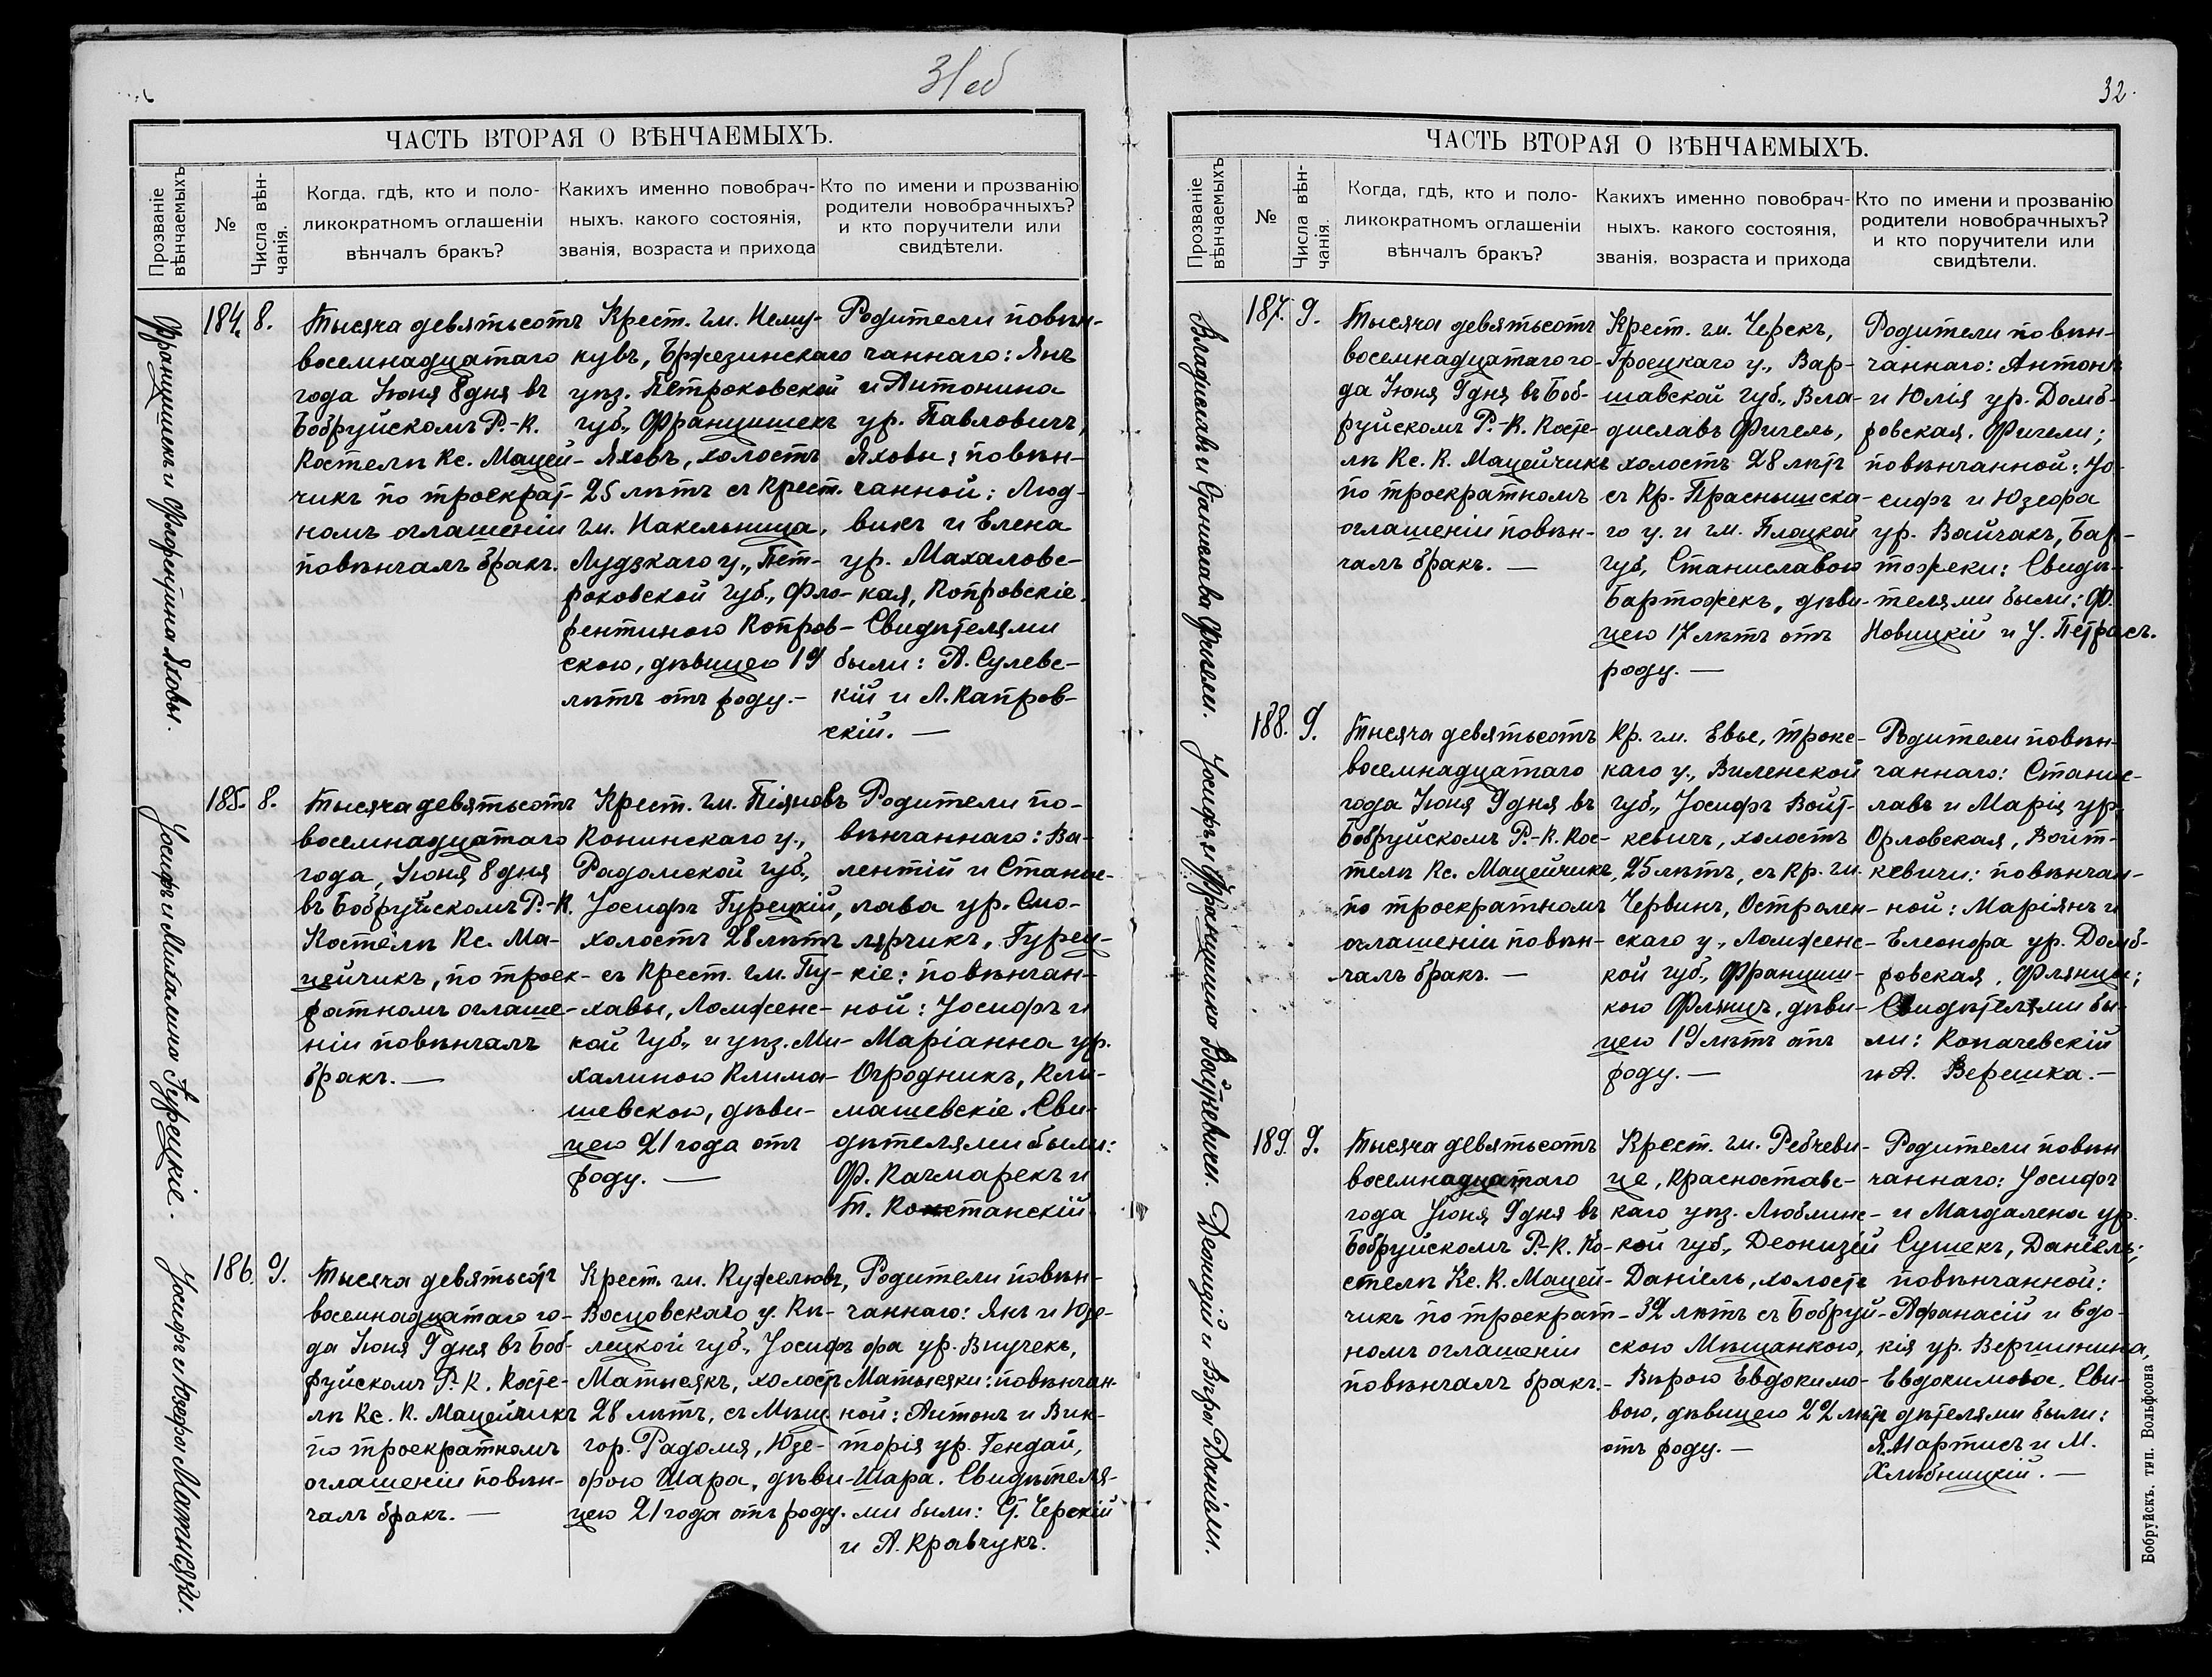 31 об
ЧАСТЬ ВТОРАЯ О ВѢНЧАЕМЫХЪ.
Прозваніе
вѣнчаемыхъ
№
Числа вѣн-
чанія.
Когда, гдѣ, кто и поло-
ликократномъ оглашеніи
вѣнчалъ бракъ?
Какихъ именно новобрач-
ныхъ, какого состоянія,
званія, возраста и прихода
Кто по имени и прозванію
родители новобрачныхъ?
и кто поручители или
свидѣтели.
Францишекъ и Флорентина Яховы.
184. 8.
Тысяча девятьсотъ
восемнадцатаго
года Іюня 8 дня въ
Бобруйскомъ Р.-К.
Костелѣ Кс. Мацей-
чикъ по троекрат-
номъ оглашеніи
повѣнчалъ бракъ.
Крест. гм. Нему-
ковъ, Бржезинскаго
уѣз. Петроковской
губ., Францишекъ
Яховъ, холостъ
25 лѣтъ съ Крест.
гм. Накельница,
Лудзкаго у., Пет-
роковской губ., Фло-
рентиною Копров-
скою, дѣвицею 19
лѣтъ отъ роду.-
Родители повѣн-
чаннаго: Янъ
и Антонина
ур. Павловичъ,
Яховы; повѣн-
чанной: Люд-
викъ и Елена
ур. Махаловс-
кая, Копровскіе.
Свидѣтелями
были: А. Сулевс-
кій и Л. Капров-
скій. —
Іосифъ и Михалина Гурецкіе.
185. 8.
Тысяча девятьсотъ
восемнадцатаго
года, Іюня 8 дня
въ Бобруйскомъ Р.-К.
Костелѣ Кс. Ма-
цейчикъ, по троек-
ратномъ оглаше-
ніи повѣнчалъ
бракъ. —
Крест. гм. Піяновъ
Конинскаго у.,
Радомской губ.,
Іосифъ Гурецкій,
холостъ 28 лѣтъ
съ Крест. гм. Пу-
хавы, Ломженс-
кой губ., и уѣз. Ми-
халиною Клима-
шевскою, дѣви-
цею 21 года отъ
роду. —
Родители по-
вѣнчаннаго: Ва-
лентій и Станис-
лава ур. Смо-
лярчикъ, Гурец-
кіе; повѣнчан-
ной: Іосифъ и
Маріанна ур.
Огродникъ, Кли-
машевскіе. Сви-
дѣтелями были:
Ф. Качмарекъ и
Т. Констанскій.
Іосифъ и Юзефа Матысяки.
186. 9.
Тысяча девятьсотъ
восемнадцатаго го-
да Іюня 9 дня въ Боб-
руйскомъ Р.-К. Косте-
лѣ Кс. К. Мацейчикъ
по троекратномъ
оглашеніи повѣн-
чалъ бракъ. —
Крест. гм. Кужелювъ,
Восцовскаго у. Кѣ-
лецкой губ., Іосифъ
Матысякъ, холостъ
28 лѣтъ, съ Мѣщ.
гор. Радомя, Юзе-
фою Шара, дѣви-
цею 21 года отъ роду.
Родители повѣн-
чаннаго: Янъ и Юзе-
фа ур. Внучекъ,
Матысяки: повѣнчан-
ной: Антонъ и Вик-
торія ур. Гендай,
Шара. Свидѣтеля-
ми были: Ст. Черскій
и А. Кравчукъ.
32.
ЧАСТЬ ВТОРАЯ О ВѢНЧАЕМЫХЪ.
Прозваніе
вѣнчаемыхъ
№
Числа вѣн-
чанія.
Когда, гдѣ, кто и поло-
ликократномъ оглашеніи
вѣнчалъ бракъ?
Какихъ именно новобрач-
ныхъ. какого состоянія,
званія. возраста и прихода
Кто по имени и прозванію
родители новобрачныхъ?
и кто поручители или
свидѣтели.
Владиславъ и Станислава Фигели.
187. 9.
Тысяча девятьсотъ
восемнадцатаго го-
да Іюня 9 дня въ Боб-
руйскомъ Р.-К. Косте-
лѣ Кс. К. Мацейчикъ
по троекратномъ
оглашеніи повѣн-
чалъ бракъ. —
Крест. гм. Черекъ,
Гроецкаго у., Вар-
шавской губ., Вла-
диславъ Фигель,
холостъ 28 лѣтъ
съ Кр. Праснышска-
го у. и гм. Плоцкой
губ., Станиславою
Бартожекъ, дѣви-
цею 17 лѣтъ отъ
роду. —
Родители повѣн-
чаннаго: Антонъ
и Юлія ур. Домб-
ровская. Фигели;
повѣнчанной: Іо-
сифъ и Юзефа
ур. Войчакъ, Бар-
тожеки: Свидѣ-
телями были: Ф.
Новицкій и У. Петрасъ.
Іосифъ и Францишка Войткевичи.
188. 9.
Тысяча девятьсотъ
восемнадцатаго
года Іюня 9 дня въ
Бобруйскомъ Р.-К. Кос-
телѣ Кс. Мацейчикъ,
по троекратномъ
оглашеніи повѣн-
чалъ бракъ. —
Кр. гм. Евье, Трокс-
каго у., Виленской
губ., Іосифъ Войт-
кевичъ, холостъ
25 лѣтъ, съ Кр. гм.
Червинъ, Остролен-
скаго у., Ломженс-
кой губ., Францишк-
кою Флянцъ, дѣви-
цею 19 лѣтъ отъ
роду. —
Родители повѣн-
чаннаго: Станис-
лавъ и Марія ур.
Орловская, Войт-
кевичи: повѣнчан-
ной: Маріянъ и
Елеонора ур. Домб-
ровская, Флянцы;
Свидѣтелями бы-
ли: Копачевскій
и А. Верешка. —
Деонизій и Вѣра Даніели.
189. 9.
Тысяча девятьсотъ
восемнадцатаго
года Іюня 9 дня въ
Бобруйскомъ Р.-К. Ко-
стелѣ Кс. К. Мацей-
чикъ по троекрат-
номъ оглашеніи
повѣнчалъ бракъ.-
Крест. гм. Ребчеви-
це, Красноставс-
каго уѣз. Люблинс-
кой губ., Деонизій
Даніель, холостъ
32 лѣтъ съ Бобруй-
скою Мѣщанкою,
Вѣрою Евдокимо-
вою, дѣвицею 22 лѣтъ
отъ роду. —
Родители повѣн
чаннаго: Іосифъ
и Магдалена ур.
Сушекъ, Даніель;
повѣнчанной:
Афанасій и Евдо-
кія ур. Вершинина,
Евдокимова. Сви-
дѣтелями были:
Я. Мартисъ и М.
Хлѣбницкій. —
Бобруйскъ. тип. Вольфсона